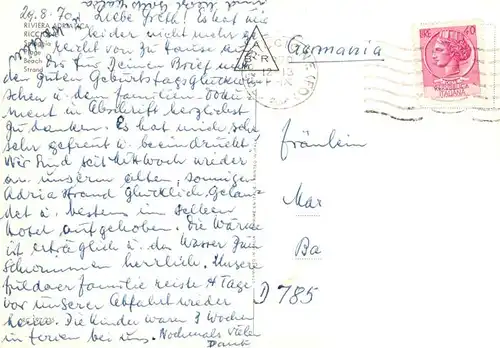 29.8.70. Liebe Greth! Es hat mir
leider nicht mehr ge
reicht von zu Hause aus
Dir für Deinen Brief mit
den guten Geburtstagsglückwün
schen u. dem Familien-Doku
ment in Abschrift herzlichst
zu danken. Es hat mich sehr
sehr gefreut u. beeindruckt.
Wir sind seit Mittwoch wieder
an unserem alten, sonnigen
Adria Strand glücklich gelan
det u. bestens im selben
Hotel aufgehoben. Die Wärme
ist erträglich u. das Wasser zum
Schwimmen herrlich. Unsere
Fuldaer Familie reiste 4 Tage
vor unserer Abfahrt wieder
heim. Die Kinder waren 3 Wochen
in Ferien bei uns. Nochmals vielen
Dank
RIVIERA ADRIATICA
RICC
Beach
Strand
Germania
LIRE 40
ITALIANA
Fräulein
Mar
Ba
D 785